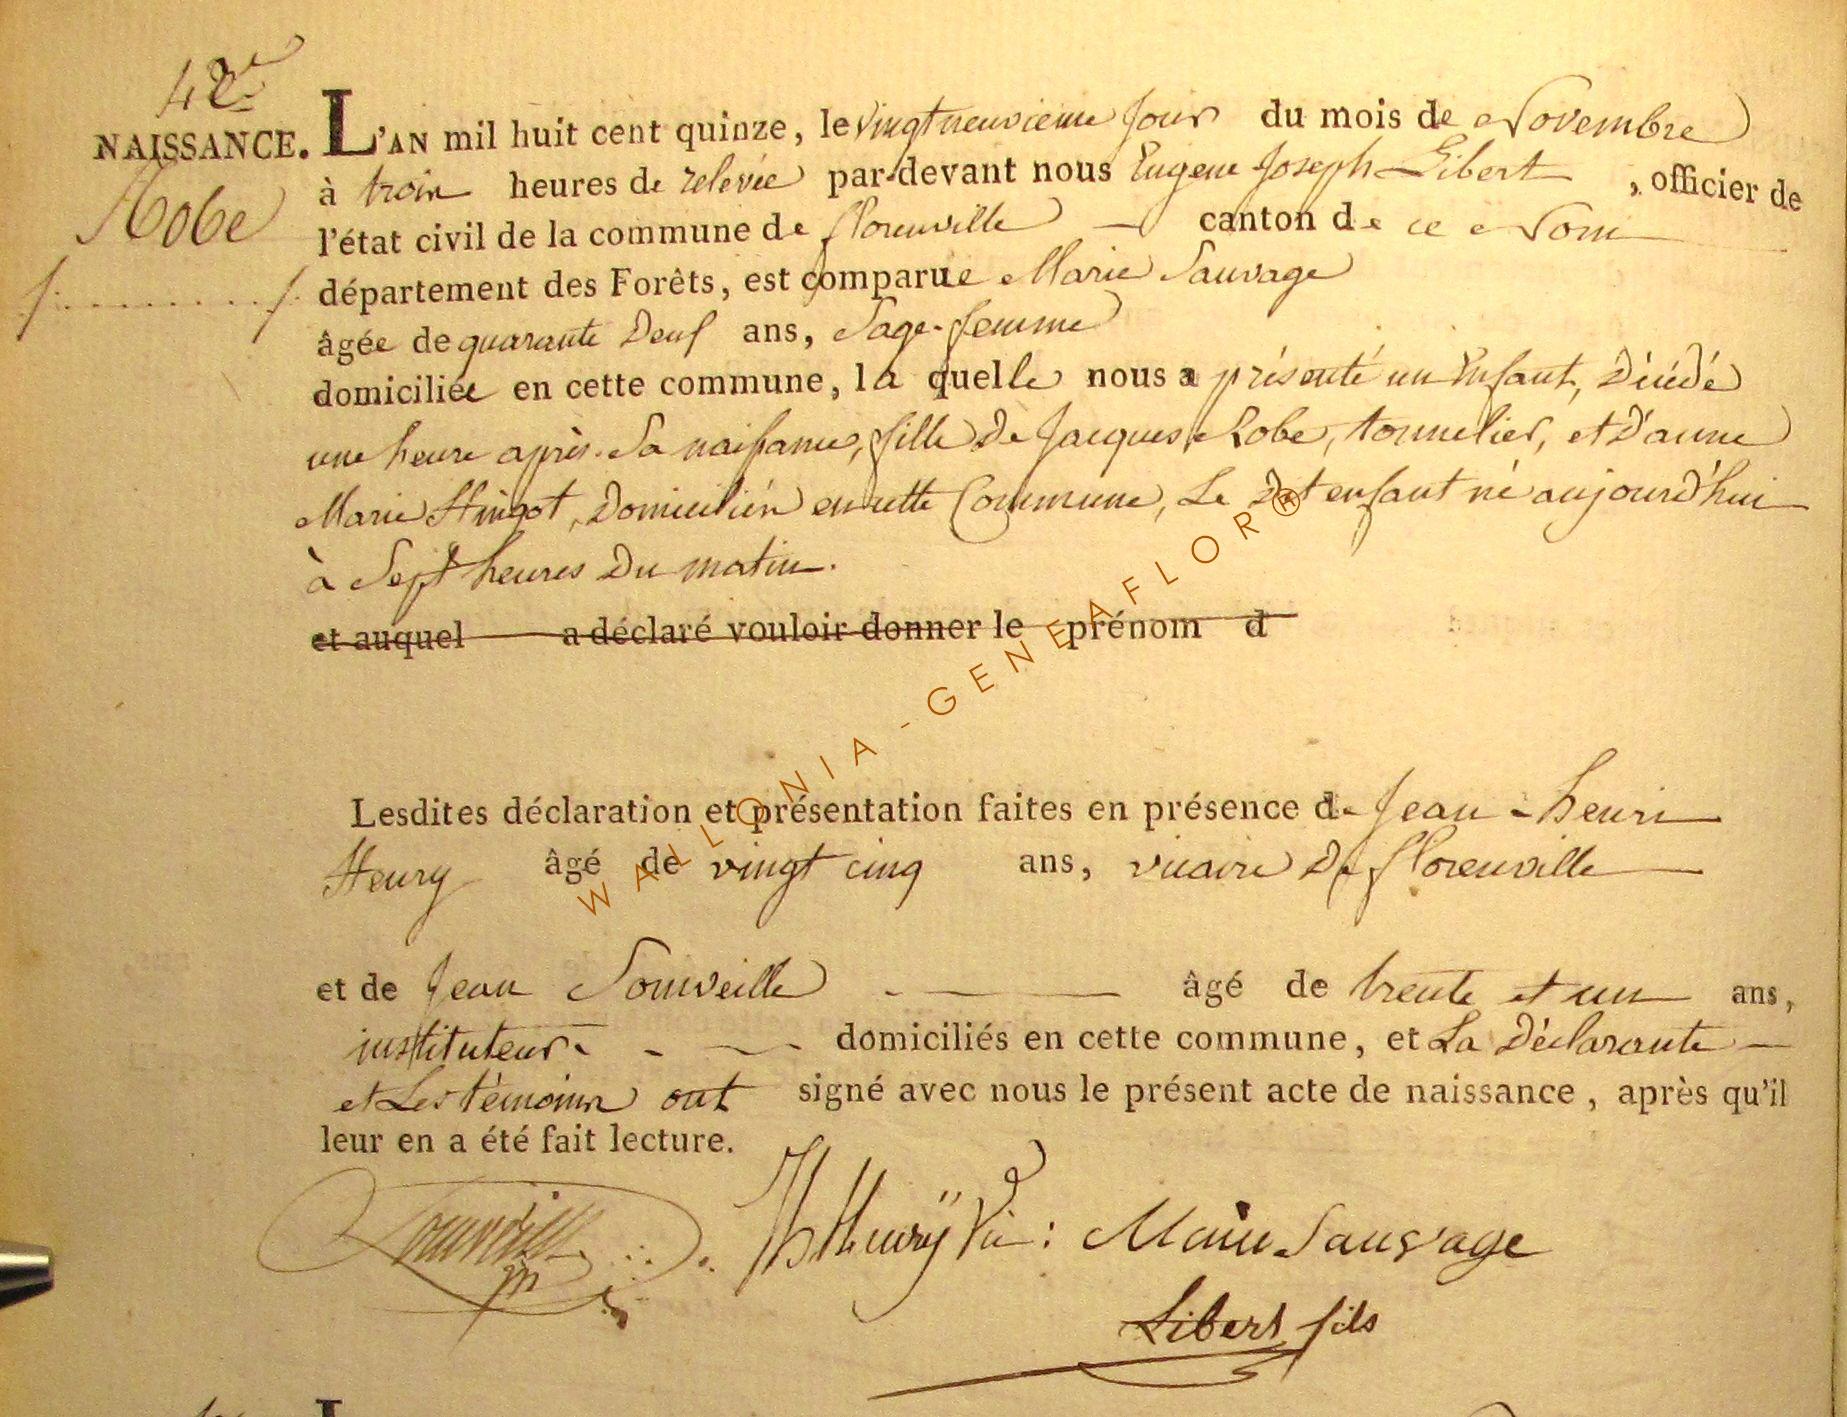 42e
NAISSANCE. L'AN mil huit cent quinze, le vingt neuvieme jour du mois de Novembre
Robe
à trois heures de relevée par-devant nous Eugene Joseph Libert, officier de
l'état civil de la commune de florenville canton de ce Nom
département des Forêts, est comparue Marie Sauvage
âgée de quarante Deuf ans, Sage-femme
domiciliée en cette commune, la quelle nous a présenté un Enfant, Décédé
une heure après Sa naissance, fille De Jacques Robe, tonnelier, et D'anne
Marie Hingot, Domiciliés en cette Commune, Le Dt enfant né aujourd'hui
à Sept heures Du matin.
et auquel a déclaré vouloir donner le prénom d
Lesdites déclaration et présentation faites en présence de Jean-henri
Henry âgé de vingt cinq ans, vicaire De florenville
et de Jean Souveille âgé de trente et un ans,
instituteur domiciliés en cette commune, et La Déclarante
et Les témoins ont signé avec nous le présent acte de naissance, après qu'il
leur en a été fait lecture.
JhHenrÿ Vic: Marie Sauvage
Libert fils
WALLONIA-GENEAFLOR®